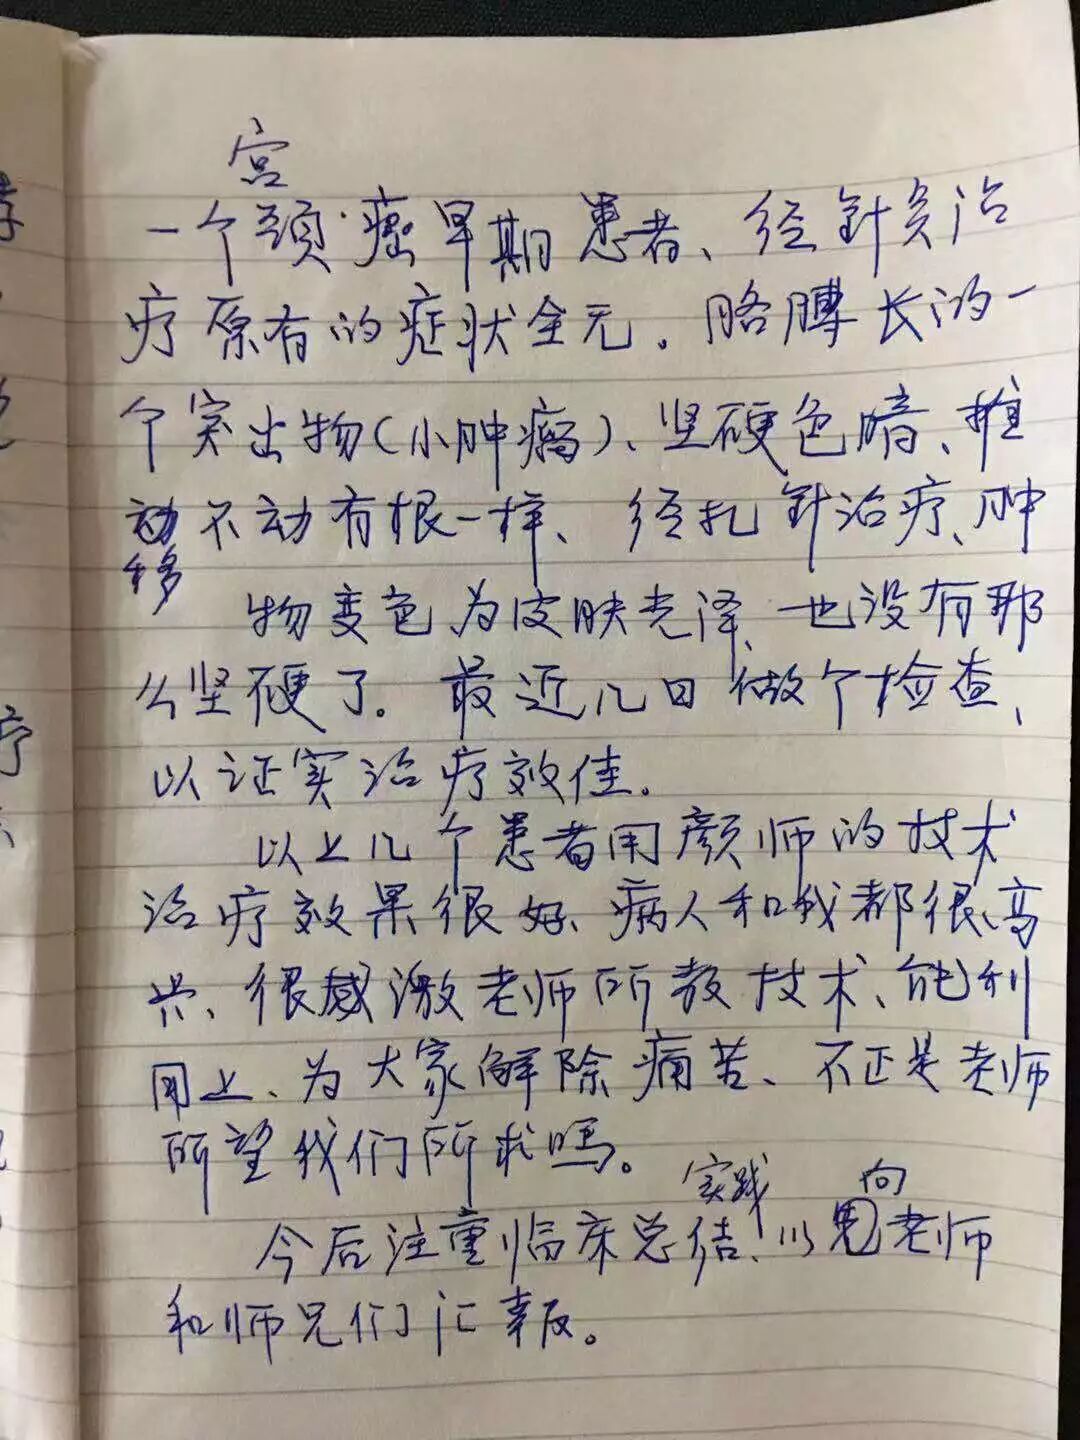 宫
一个颈癌早期患者、经针灸治
疗原有的症状全无。胳膊长的一
个突出物(小肿瘤)、坚硬色暗、推
动不动有根一样、经扎针治疗、肿
移
物变色为皮肤光泽、也没有那
么坚硬了。最近几日做个检查、
以证实治疗效佳.
以上几个患者用颜师的技术
治疗效果很好、病人和我都很高
兴、很感激老师所教技术、能利
用上、为大家解除痛苦、不正是老师
所望我们所求吗。
实践 向
今后注重临床总结、以老师
和师兄们汇报。